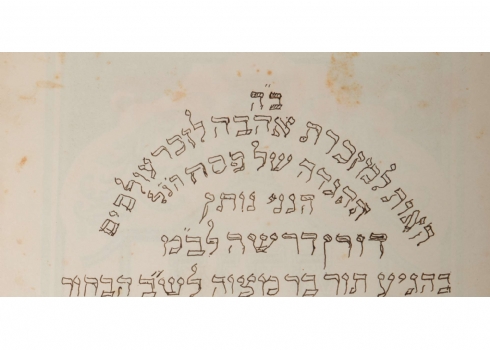 ב"ה
למזכרת אהבה לזכר עולמים
ההגדה של פסח
הנני נותן
דורון דרשה לב"מ
בהגיע תור בר מצוה לש"ב הבחור